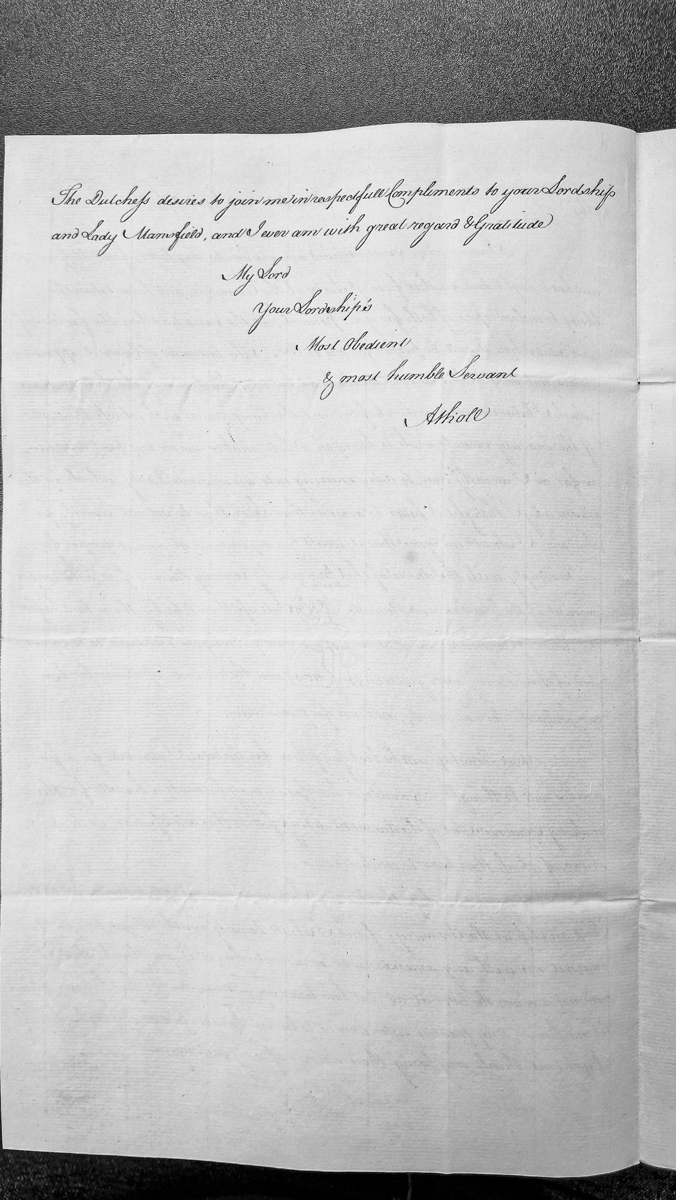 The Dutchess desires to join me in respectfull Compliments to your Lordship
and Lady Mansfield, and I ever am with great regard & Gratitude
My Lord
Your Lordship's
Most Obedient
& most humble Servant
Atholl